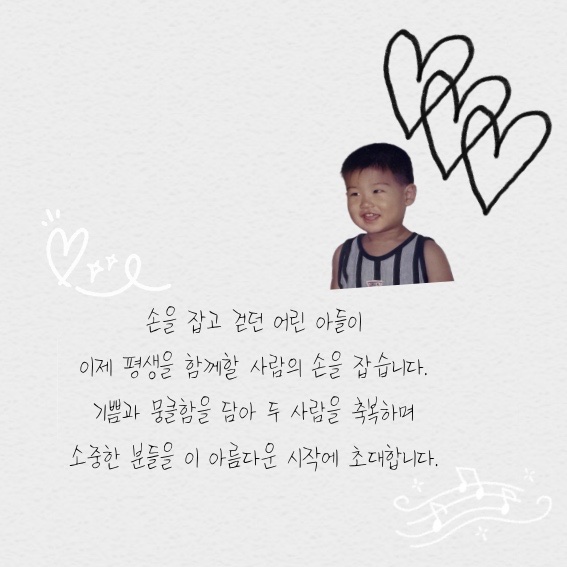 손을 잡고 걷던 어린 아들이
이제 평생을 함께할 사람의 손을 잡습니다.
기쁨과 뭉클함을 담아 두 사람을 축복하며
소중한 분들을 이 아름다운 시작에 초대합니다.